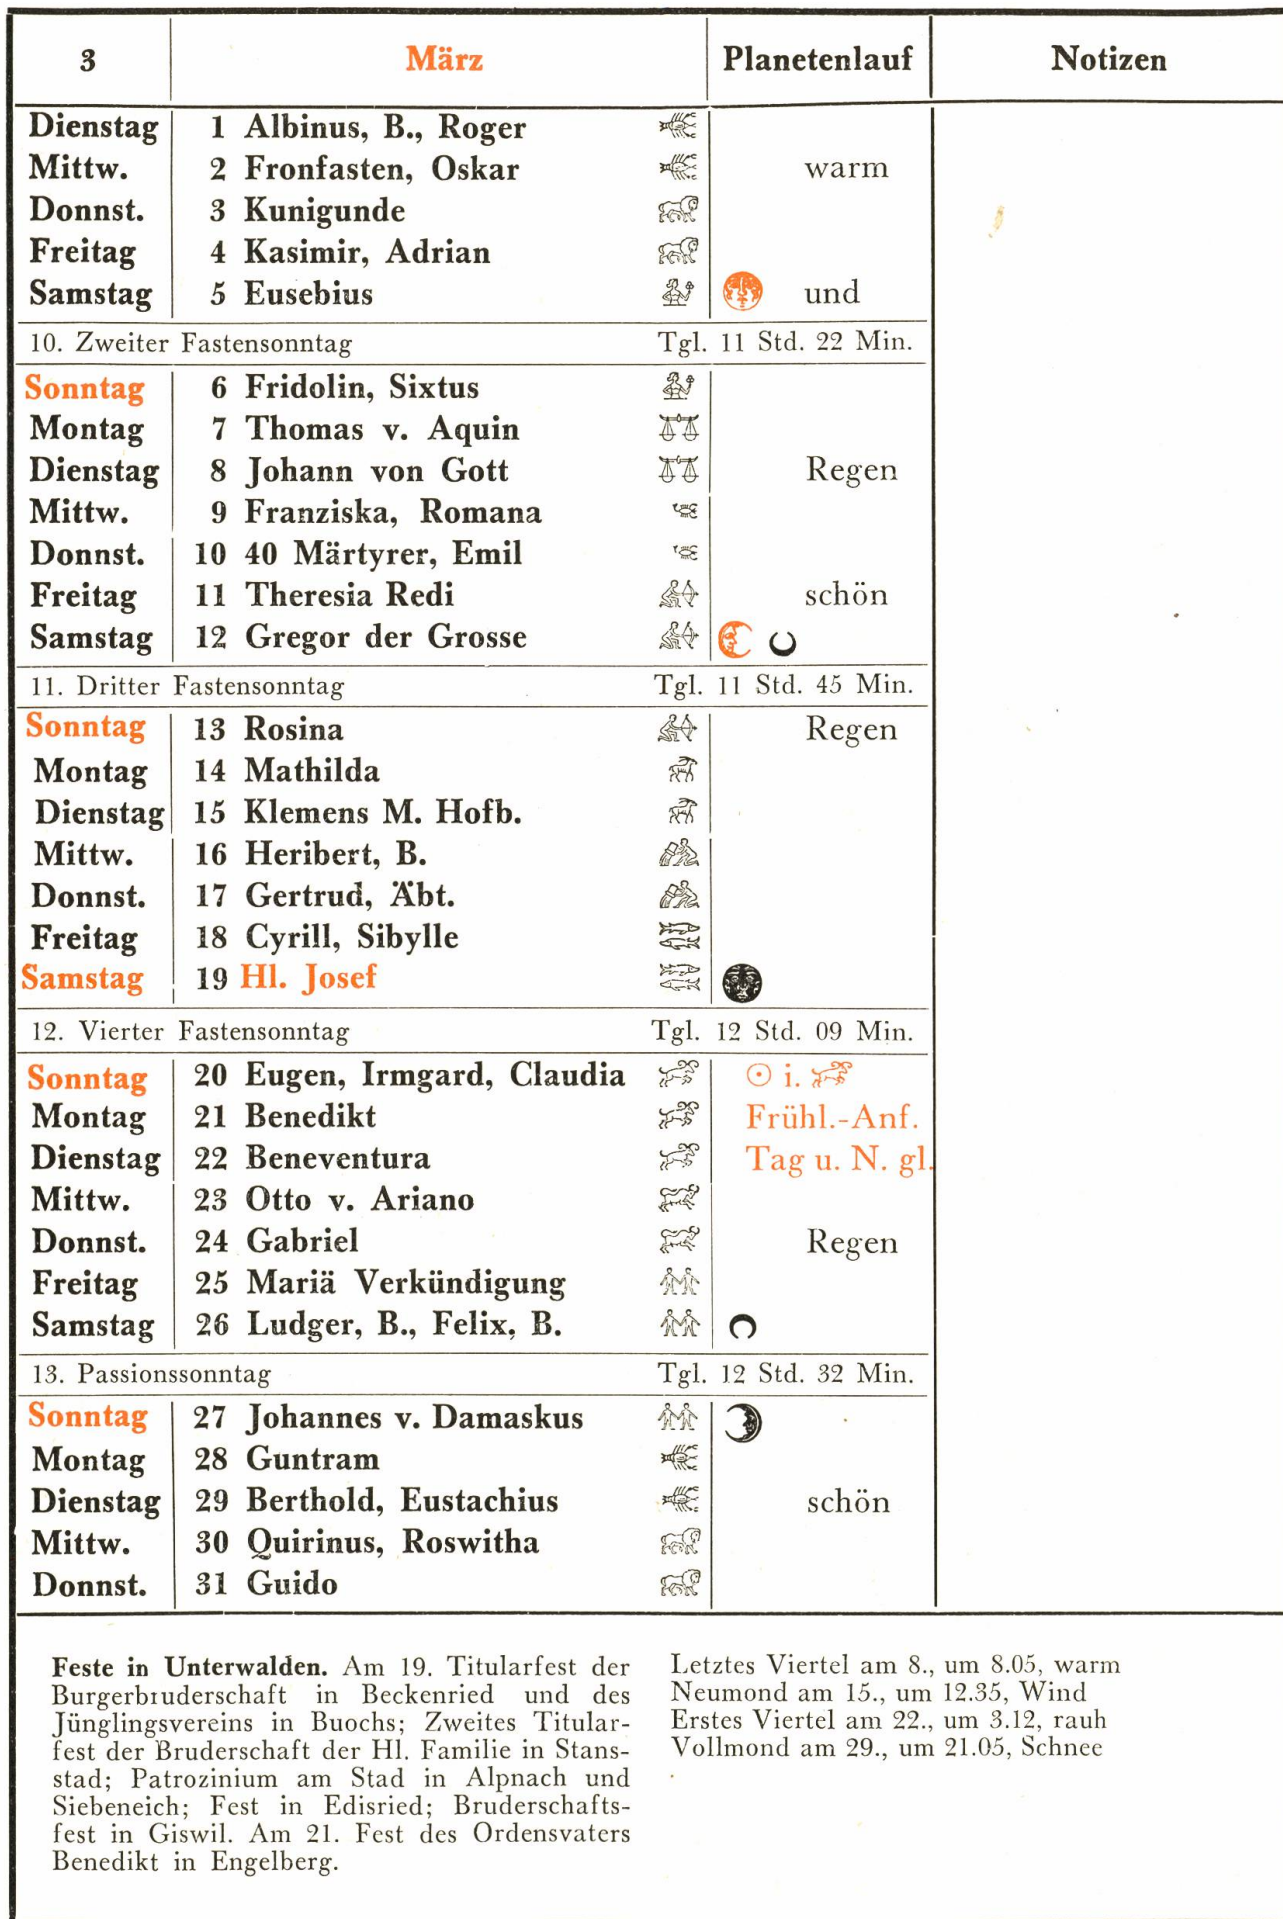 3 März Planetenlauf Notizen
Dienstag 1 Albinus, B., Roger
Mittw. 2 Fronfasten, Oskar warm
Donnst. 3 Kunigunde
Freitag 4 Kasimir, Adrian
Samstag 5 Eusebius und
10. Zweiter Fastensonntag Tgl. 11 Std. 22 Min.
Sonntag 6 Fridolin, Sixtus
Montag 7 Thomas v. Aquin
Dienstag 8 Johann von Gott Regen
Mittw. 9 Franziska, Romana
Donnst. 10 40 Märtyrer, Emil
Freitag 11 Theresia Redi schön
Samstag 12 Gregor der Grosse
11. Dritter Fastensonntag Tgl. 11 Std. 45 Min.
Sonntag 13 Rosina Regen
Montag 14 Mathilda
Dienstag 15 Klemens M. Hofb.
Mittw. 16 Heribert, B.
Donnst. 17 Gertrud, Äbt.
Freitag 18 Cyrill, Sibylle
Samstag 19 Hl. Josef
12. Vierter Fastensonntag Tgl. 12 Std. 09 Min.
Sonntag 20 Eugen, Irmgard, Claudia ☉ i.
Montag 21 Benedikt Frühl.-Anf.
Dienstag 22 Beneventura Tag u. N. gl.
Mittw. 23 Otto v. Ariano
Donnst. 24 Gabriel Regen
Freitag 25 Mariä Verkündigung
Samstag 26 Ludger, B., Felix, B.
13. Passionssonntag Tgl. 12 Std. 32 Min.
Sonntag 27 Johannes v. Damaskus
Montag 28 Guntram
Dienstag 29 Berthold, Eustachius schön
Mittw. 30 Quirinus, Roswitha
Donnst. 31 Guido
Feste in Unterwalden. Am 19. Titularfest der
Burgerbruderschaft in Beckenried und des
Jünglingsvereins in Buochs; Zweites Titular-
fest der Bruderschaft der Hl. Familie in Stans-
stad; Patrozinium am Stad in Alpnach und
Siebeneich; Fest in Edisried; Bruderschafts-
fest in Giswil. Am 21. Fest des Ordensvaters
Benedikt in Engelberg.
Letztes Viertel am 8., um 8.05, warm
Neumond am 15., um 12.35, Wind
Erstes Viertel am 22., um 3.12, rauh
Vollmond am 29., um 21.05, Schnee